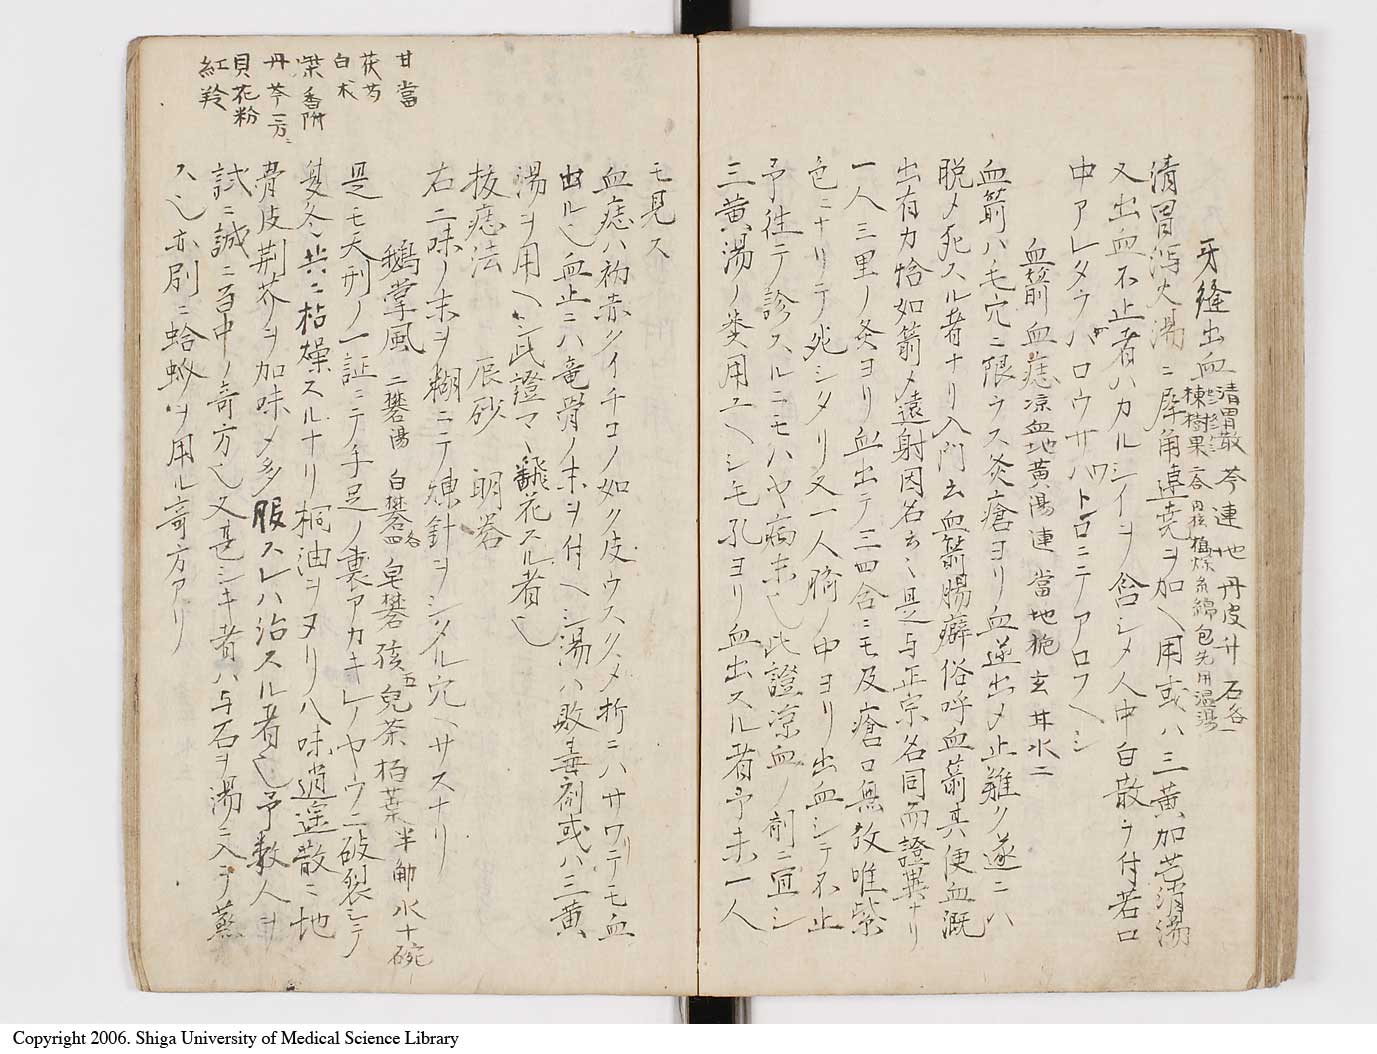 牙縫出血 清胃散 芩 連 地 丹皮 升 石各一
楝樹果二合 内核 糸綿包先用温湯
清胃瀉火湯ニ犀角連堯ヲ加ヘ用或ハ三黄加芒消湯
又出血不止者ハカルシイヲ含シメ人中白散ヲ付若口
中アレタラバロウサバトロニテアロフヘシ
血箭血痣凉血地黄湯連 當 地 梔 玄 井水二
血箭ハ毛穴ニ限ラス灸瘡ヨリ血逆出メ止難ク遂ニハ
脱メ死スル者ナリ入門云血箭腸癖俗呼血箭其便血漑
出有力恰如箭メ遠射因名云々是与正宗名同而證異ナリ
一人三里ノ灸ヨリ血出テ三四合ニモ及瘡口無攷唯紫
色ニナリテ死シタリ又一人臍ノ中ヨリ出血シテ不止
予往テ診スルニモハヤ病末也此證凉血ノ剤ニ宜シ
三黄湯ノ類用ユヘシ毛孔ヨリ血出スル者予未一人
モ見ス
血痣ハ初赤クイチコノ如ク皮ウスクメ折ニハサワリテモ血
出ル也血止ニハ竜骨ノ末ヲ付ヘシ湯ハ敗毒剤或ハ三黄
湯ヲ用ヘシ此證マヽ飜花スル者也
抜痣法 辰砂 明礬
右二味ノ末ヲ糊ニテ煉針ヲシタル穴ヘサスナリ
鵝掌風 二礬湯 白礬 皂礬各四 孩兒茶五 栢葉半觔 水十碗
是モ天刑ノ一証ニテ手足ノ裏アカキレノヤウニ破裂シテ
夏冬共ニ枯燥スルナリ桐油ヲヌリ八味逍遥散ニ地
骨皮荆芥ヲ加味メ多服スレハ治スル者也予数人ヲ
試ニ誠ニ百中ノ奇方也又甚シキ者ハ与石ヲ湯ニ入テ蒸
スヘシ亦剧ニ蛤蚧ヲ用ル奇方アリ
甘 當
茯 芍
白 朮
柴 香附
丹 芩 一方ニ
貝 花粉
紅 羚
Copyright 2006. Shiga University of Medical Science Library